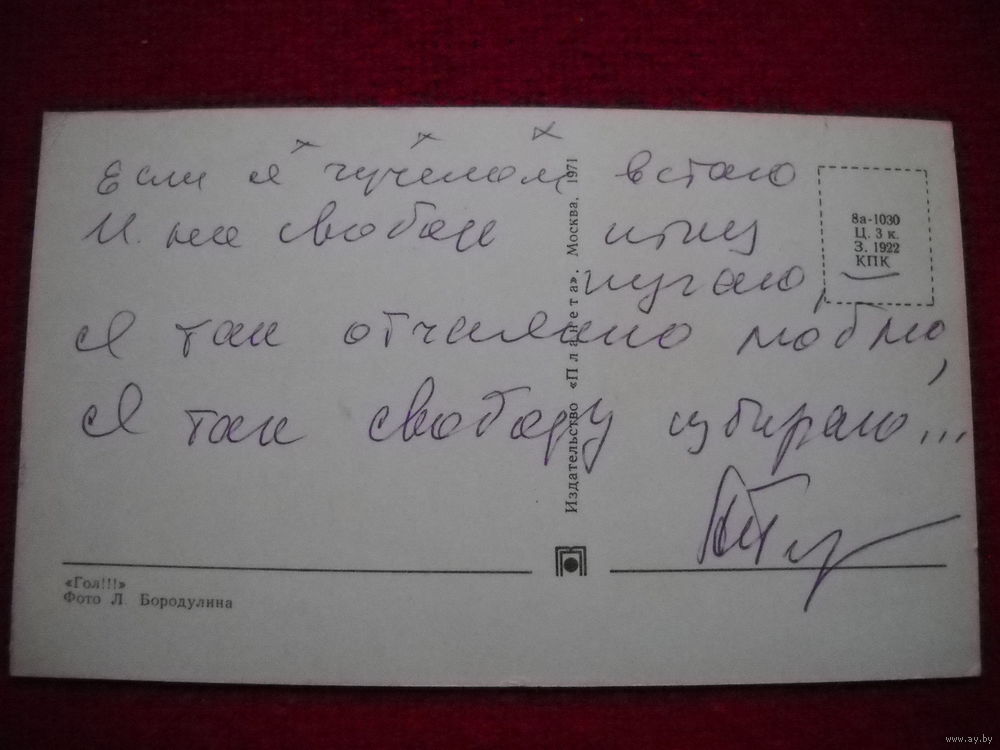 Если я чучелом встаю
И на свободе птиц
пугаю,
Я так отчаянно люблю,
Я так свободу избираю...
8а-1030
Ц. 3 к.
З. 1922
КПК
Издательство «Планета». Москва, 1971
«Гол!!!»
Фото Л. Бородулина
www.ay.by